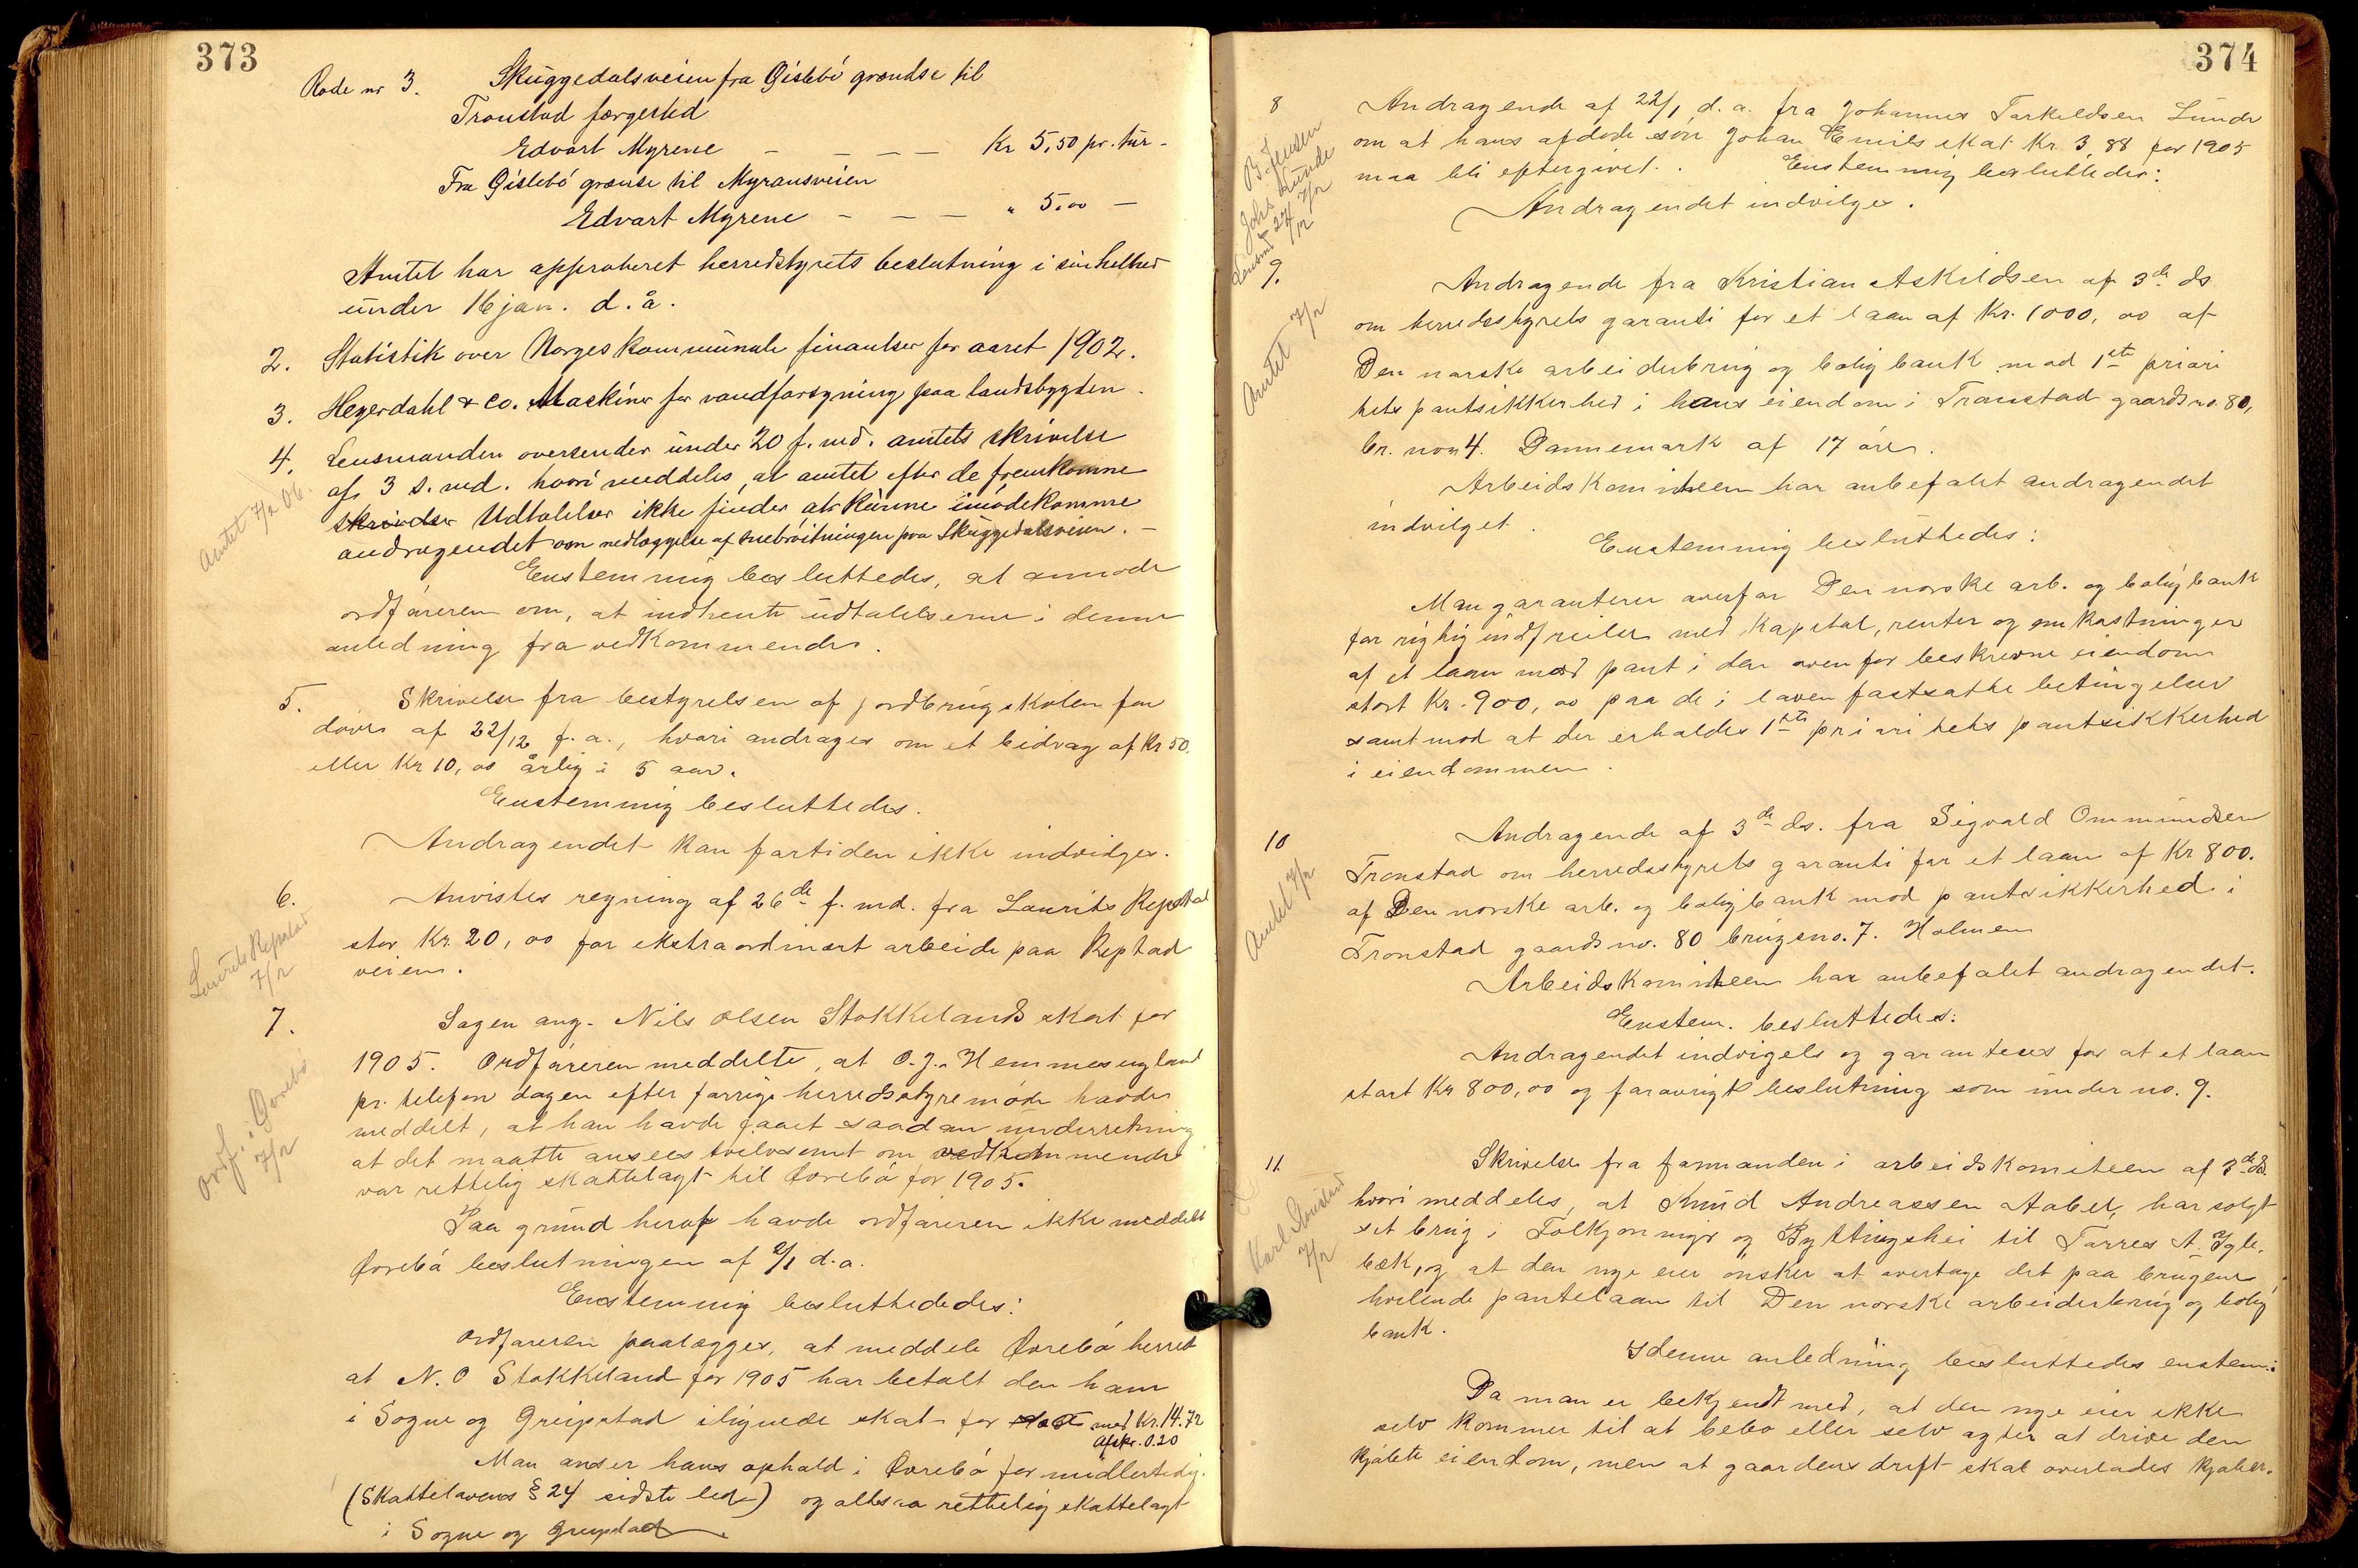 373
Rode nr 3. Skuggedalsveien fra Gislebö grændse til
Tronstad færgested
Edvart Myrene — — — — Kr 5,50 pr. tur -
Fra Gislebö grænse til Myransveien
Edvart Myrene — — — " 5,00 —
Amtet har approberet herredstyrets beslutning i sin helhed
under 16 jan. d. å.
2. Statistik over Norges kommunale finantser for aaret 1902.
3. Heyerdahl & Co. Maskiner for vandforsyning paa landsbygden.
4. Lensmanden oversender under 20 f. md. amtets skrivelse
Amtet 7/2 06.
af 3 s. md. hvori meddeles, at amtet efter de fremkomne
skrivelser Udtalelser ikke finder at kunne imödekomme
andragendet om nedlæggelse af snebröitningen paa Skuggedalsveien. —
Enstemmig besluttedes, at anmode
ordföreren om, at indhente udtalelserne i denne
anledning fra vedkommende.
5. Skrivelse fra bestyrelsen af jordbrugskolen for
döve af 22/12 f. a., hvori andrages om et bidrag af Kr 50.
eller Kr 10,00 årlig i 5 aar.
Enstemmig besluttedes.
Andragendet kan fortiden ikke indvilges.
6. Anvistes regning af 26de f. md. fra Laurits Repstad
Laurits Repstad
7/2
stor Kr. 20,00 for ekstraordinært arbeide paa Repstad
veien.
7. Sagen ang. Nils Olsen Stokkelands skat for
1905. Ordföreren meddelte, at O. J. Hemmesugland
Ordf. i Övrebö
7/2
pr. telefon dagen efter forrige herredsstyremöde havde
meddelt, at han havde faaet saadan underretning
at det maatte ansees tvilvsomt om vedkommende
var rettelig skattelagt til Övrebö for 1905.
Paa grund heraf havde ordföreren ikke meddelt
Övrebö beslutningen af 2/1 d. a.
Enstemmig besluttededes:
Ordföreren paalægges, at meddele Övrebö herred
at N. O Stokkeland for 1905 har betalt den ham
i Sogne og Greipstad ilignede skat for med Kr. 14.72
Afskr. 0.20
Man anser hans ophold i Övrebö for midlertidig.
(Skattelovens § 24 sidste led) og altsaa rettelig skattelagt
i Sogne og Greipstad
374
8 Andragende af 22/1 d. a. fra Johannes Tarkeldsen Lunde
B. Jensen
Johs Lunde 7/2
Lensmd 24/12
om at hans afdöde sön Johan Emils skat Kr. 3,88 for 1905
maa bli eftergivet. Enstemmig besluttedes:
Andragendet indvilges.
9. Andragende fra Kristian Askildsen af 3de ds
Amtet 7/2
om herredsstyrets garanti for et laan af Kr. 1000,00 af
Den norske arbeiderbrug og bolig bank mod 1ste priori
tets pantsikkerhed i hans eiendom i Tronstad gaards no. 80,
br. no 4. Dannemark af 17 öre.
Arbeidskomiteen har anbefalet andragendet
indvilget. Enstemmig besluttedes:
Man garanterer overfor Den norske arb. og boligbank
for rigtig indfrielse med kapital, renter og omkostninger
af et laan mod pant i den ovenfor beskrevne eiendom
stort Kr. 900,00 paa de i loven fastsatte betingelser
samt mod at der erholdes 1ste prioritets pantsikkerhed
i eiendommen.
10 Andragende af 3de ds. fra Sigvald Ommundsen
Amtet 7/2
Tronstad om herredsstyrets garanti for et laan af Kr 800.
af Den norske arb. og boligbank mod pantsikkerhed i
Tronstad gaards no. 80 brugsno. 7. Holmen
Arbeidskomiteen har anbefalet andragendet.
Enstem. besluttedes:
Andragendet indvigels og garanteres for at et laan
stort Kr 800,00 og forövrigt beslutning som under no. 9.
11. Skrivelse fra formanden i arbeidskomiteen af 3de ds.
7/2
hvori meddeles, at Knud Andreassen Aabel, har solgt
set brug i Folkjonmyr og Byttingshei til Tarres A. Igle-
bæk, og at den nye eier önsker at overtage det paa brugene
hvilende pantelaan til Den norske arbeiderbrug og bolig
bank.
I denne anledning besluttedes enstem.:
Da man er bekjendt med, at den nye eier ikke
selv kommer til at bebo eller selv agter at drive den
kjöbte eiendom, men at gaardens drift skal overlades kjöber-